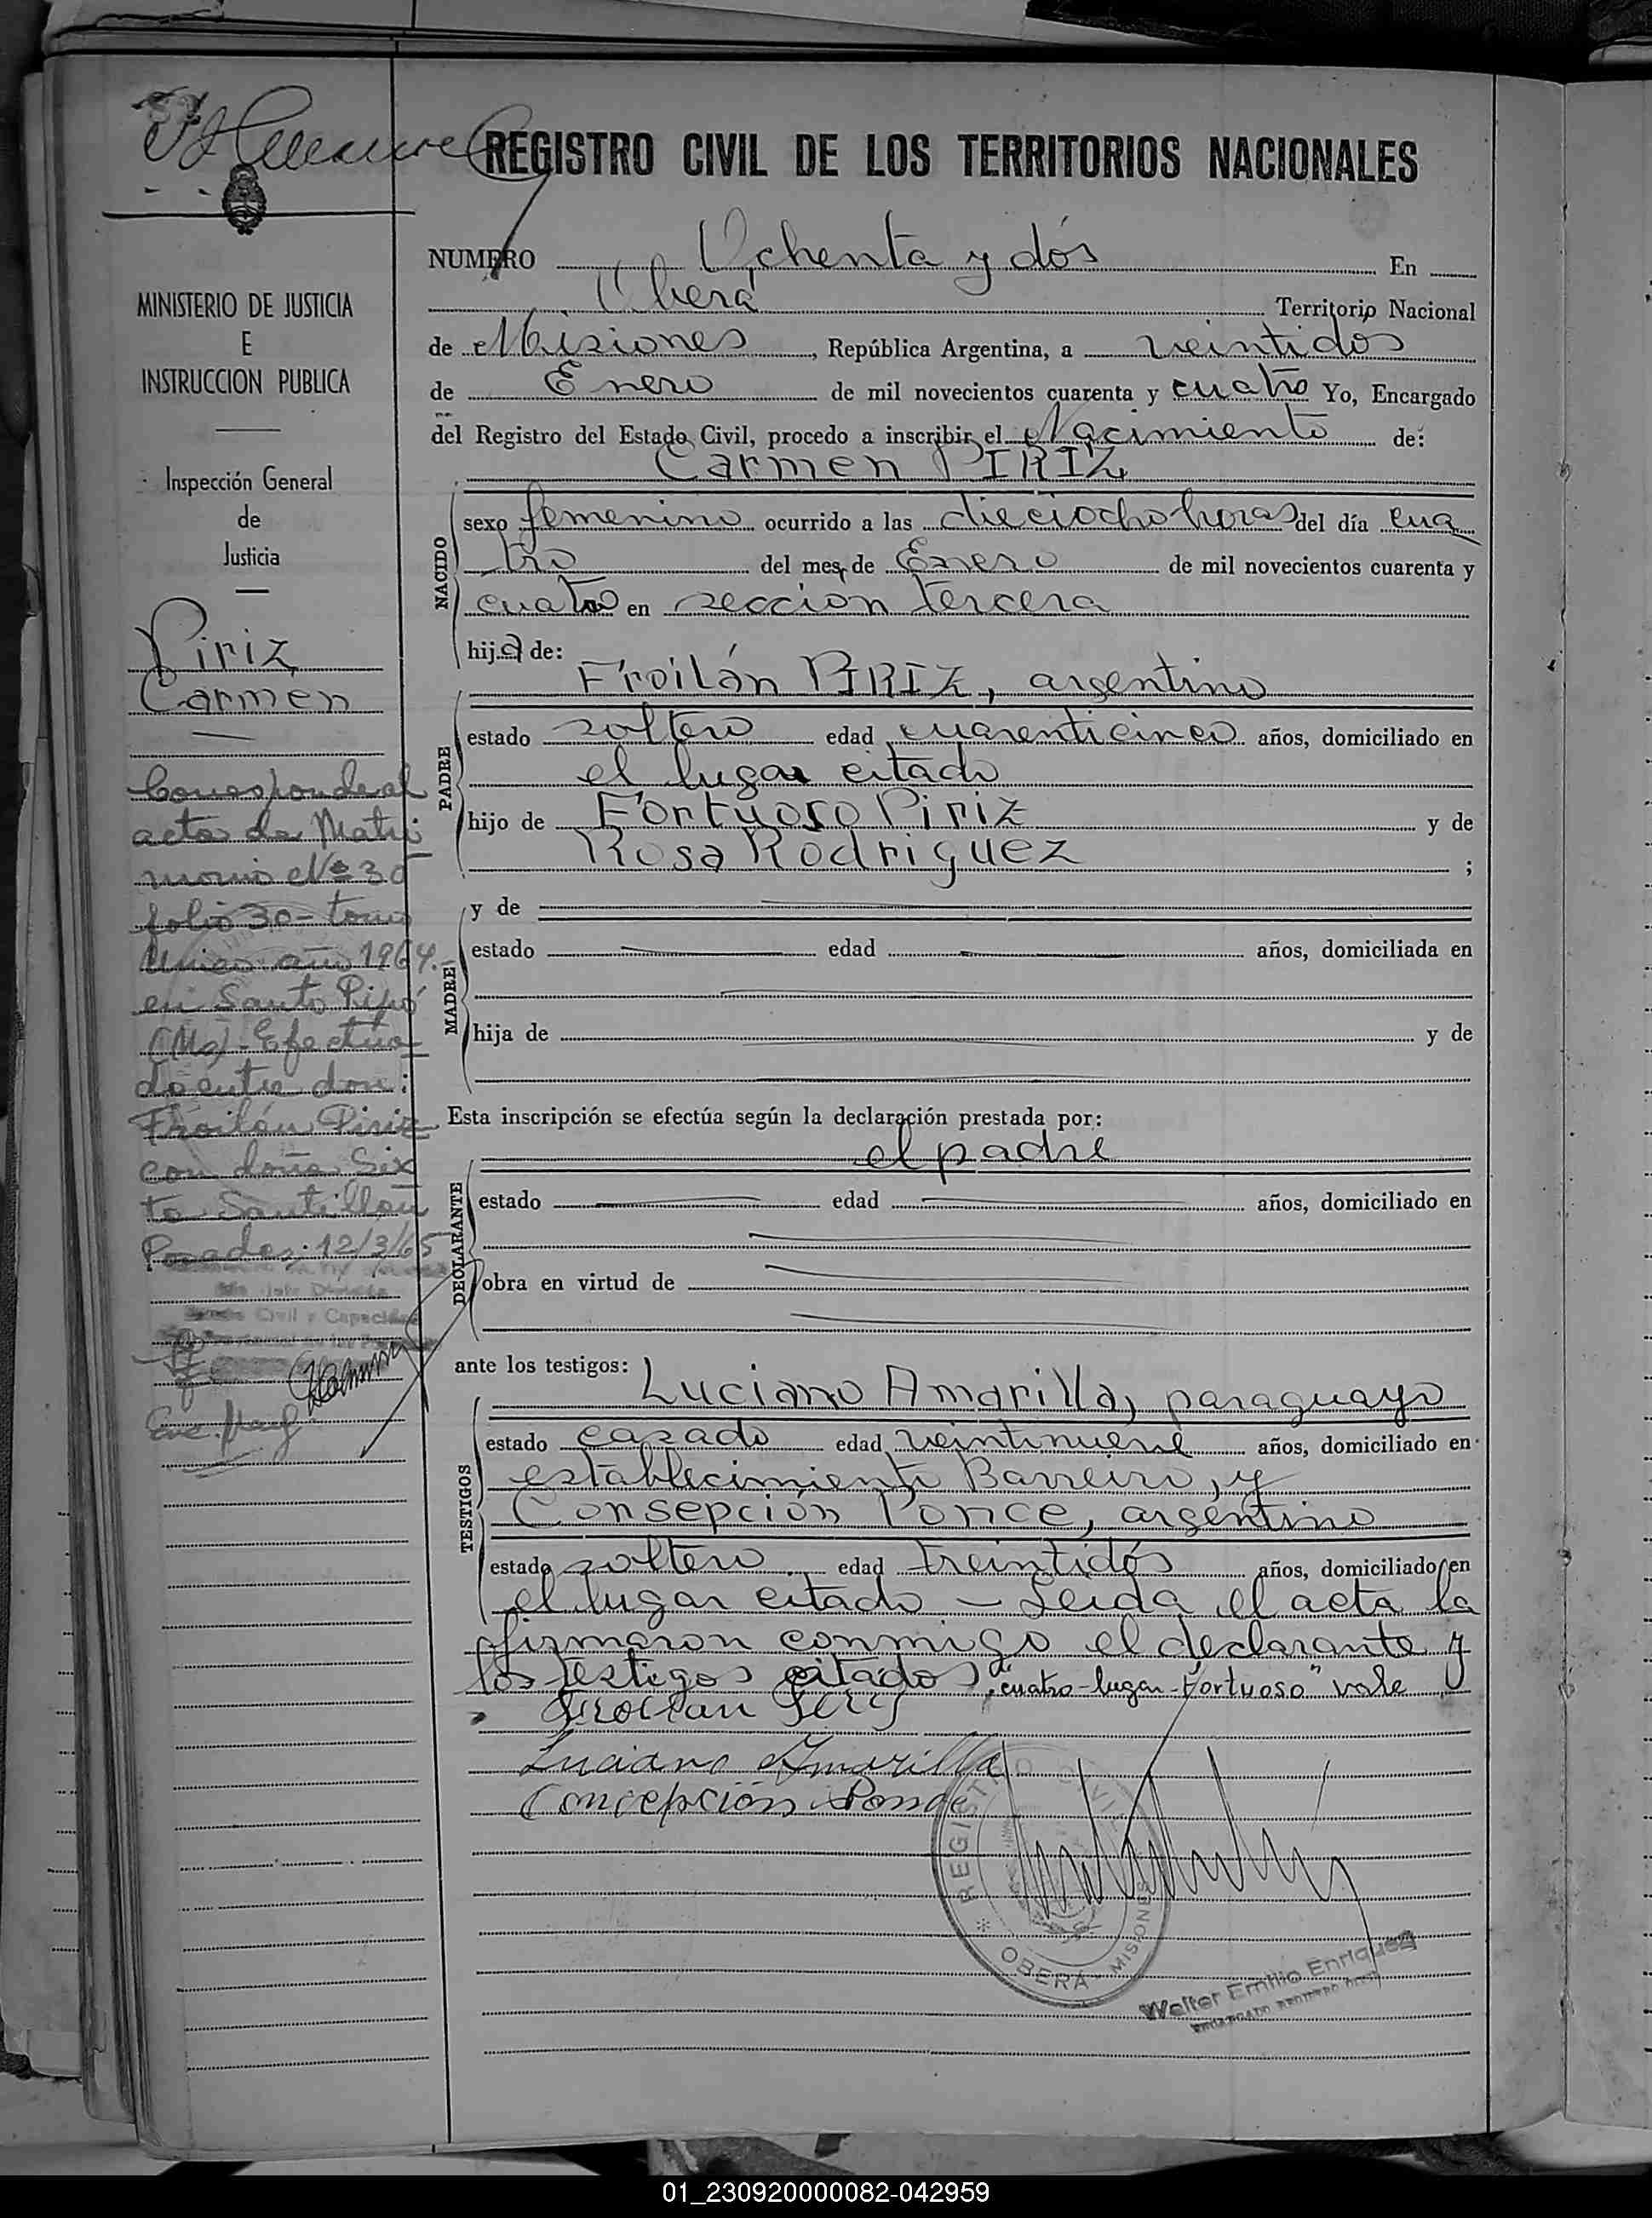 82
REGISTRO CIVIL DE LOS TERRITORIOS NACIONALES
MINISTERIO DE JUSTICIA
E
INSTRUCCION PUBLICA
Inspección General
de
Justicia
Piriz
Carmen
Corresponde al
acta de Matri
monio Nº 30
folio 30 - tomo
Unico año 1964.-
en Santo Pipó
(Ms) - Efectua
do entre don:
Froilán Piriz
con doña Six
ta Santillan
Posadas: 12/3/65
Civil y Capacidad
Enc.
NUMERO Ochenta y dós En
Oberá Territorio Nacional
de Misiones, República Argentina, a veintidos
de Enero de mil novecientos cuarenta y cuatro Yo, Encargado
del Registro del Estado Civil, procedo a inscribir el Nacimiento de:
Carmen PIRIZ
NACIDO
sexo femenino ocurrido a las dieciocho horas del día cua
tro del mes de Enero de mil novecientos cuarenta y
cuatro en seccion tercera
hija de:
PADRE
Froilán PIRIZ, argentino
estado soltero edad cuarenticinco años, domiciliado en
el lugar citado
hijo de Fortuoso Piriz y de
Rosa Rodriguez ;
MADRE
y de
estado edad años, domiciliada en
hija de y de
Esta inscripción se efectúa según la declaración prestada por:
DECLARANTE
el padre
estado edad años, domiciliado en
obra en virtud de
ante los testigos:
TESTIGOS
Luciano Amarilla, paraguayo
estado casado edad veintinueve años, domiciliado en
establecimiento Barreiro, y
Consepción Ponce, argentino
estado soltero edad treintidós años, domiciliado en
el lugar citado - Leida el acta la
firmaron conmigo el declarante y
los testigos citados "cuatro-lugar-Fortuoso" vale
Froilan Piriz
Luciano Amarilla
Concepción Ponce
REGISTRO CIVIL
* OBERÁ - MISIONES
Walter Emilio Enriquez
01_230920000082-042959